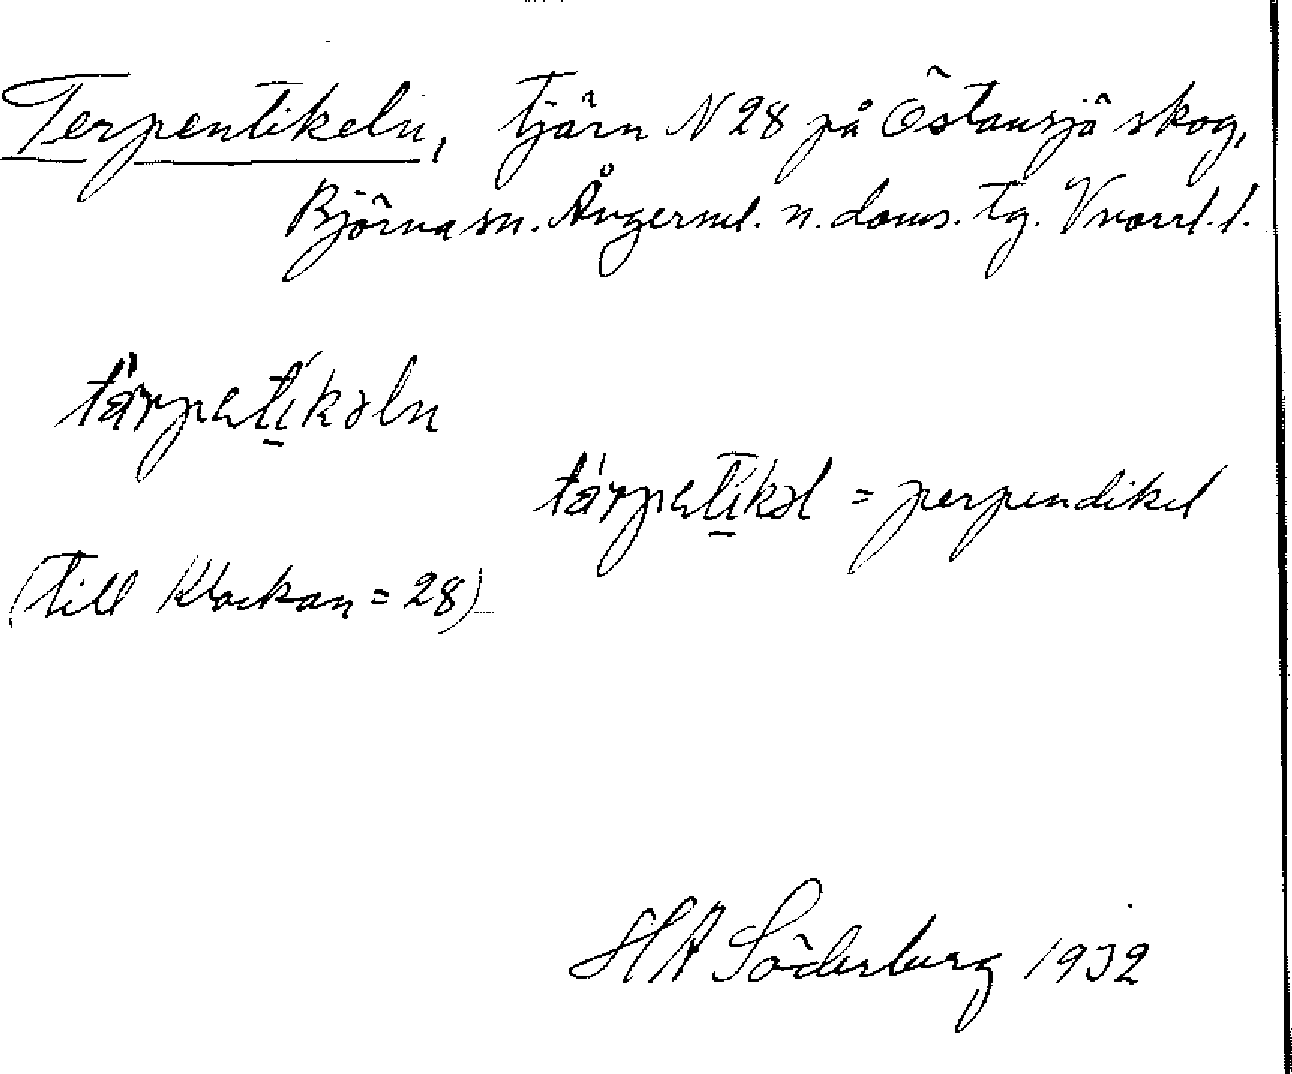 Terpentikeln, tjärn N 28 på Östansjö skog,
Björna sn. Ångerml. n. doms. tg. Vnorrl. l.
tärpatikəln
tärpatikəl = perpendikel
(till Klockan = 28)
HA Söderberg 1932